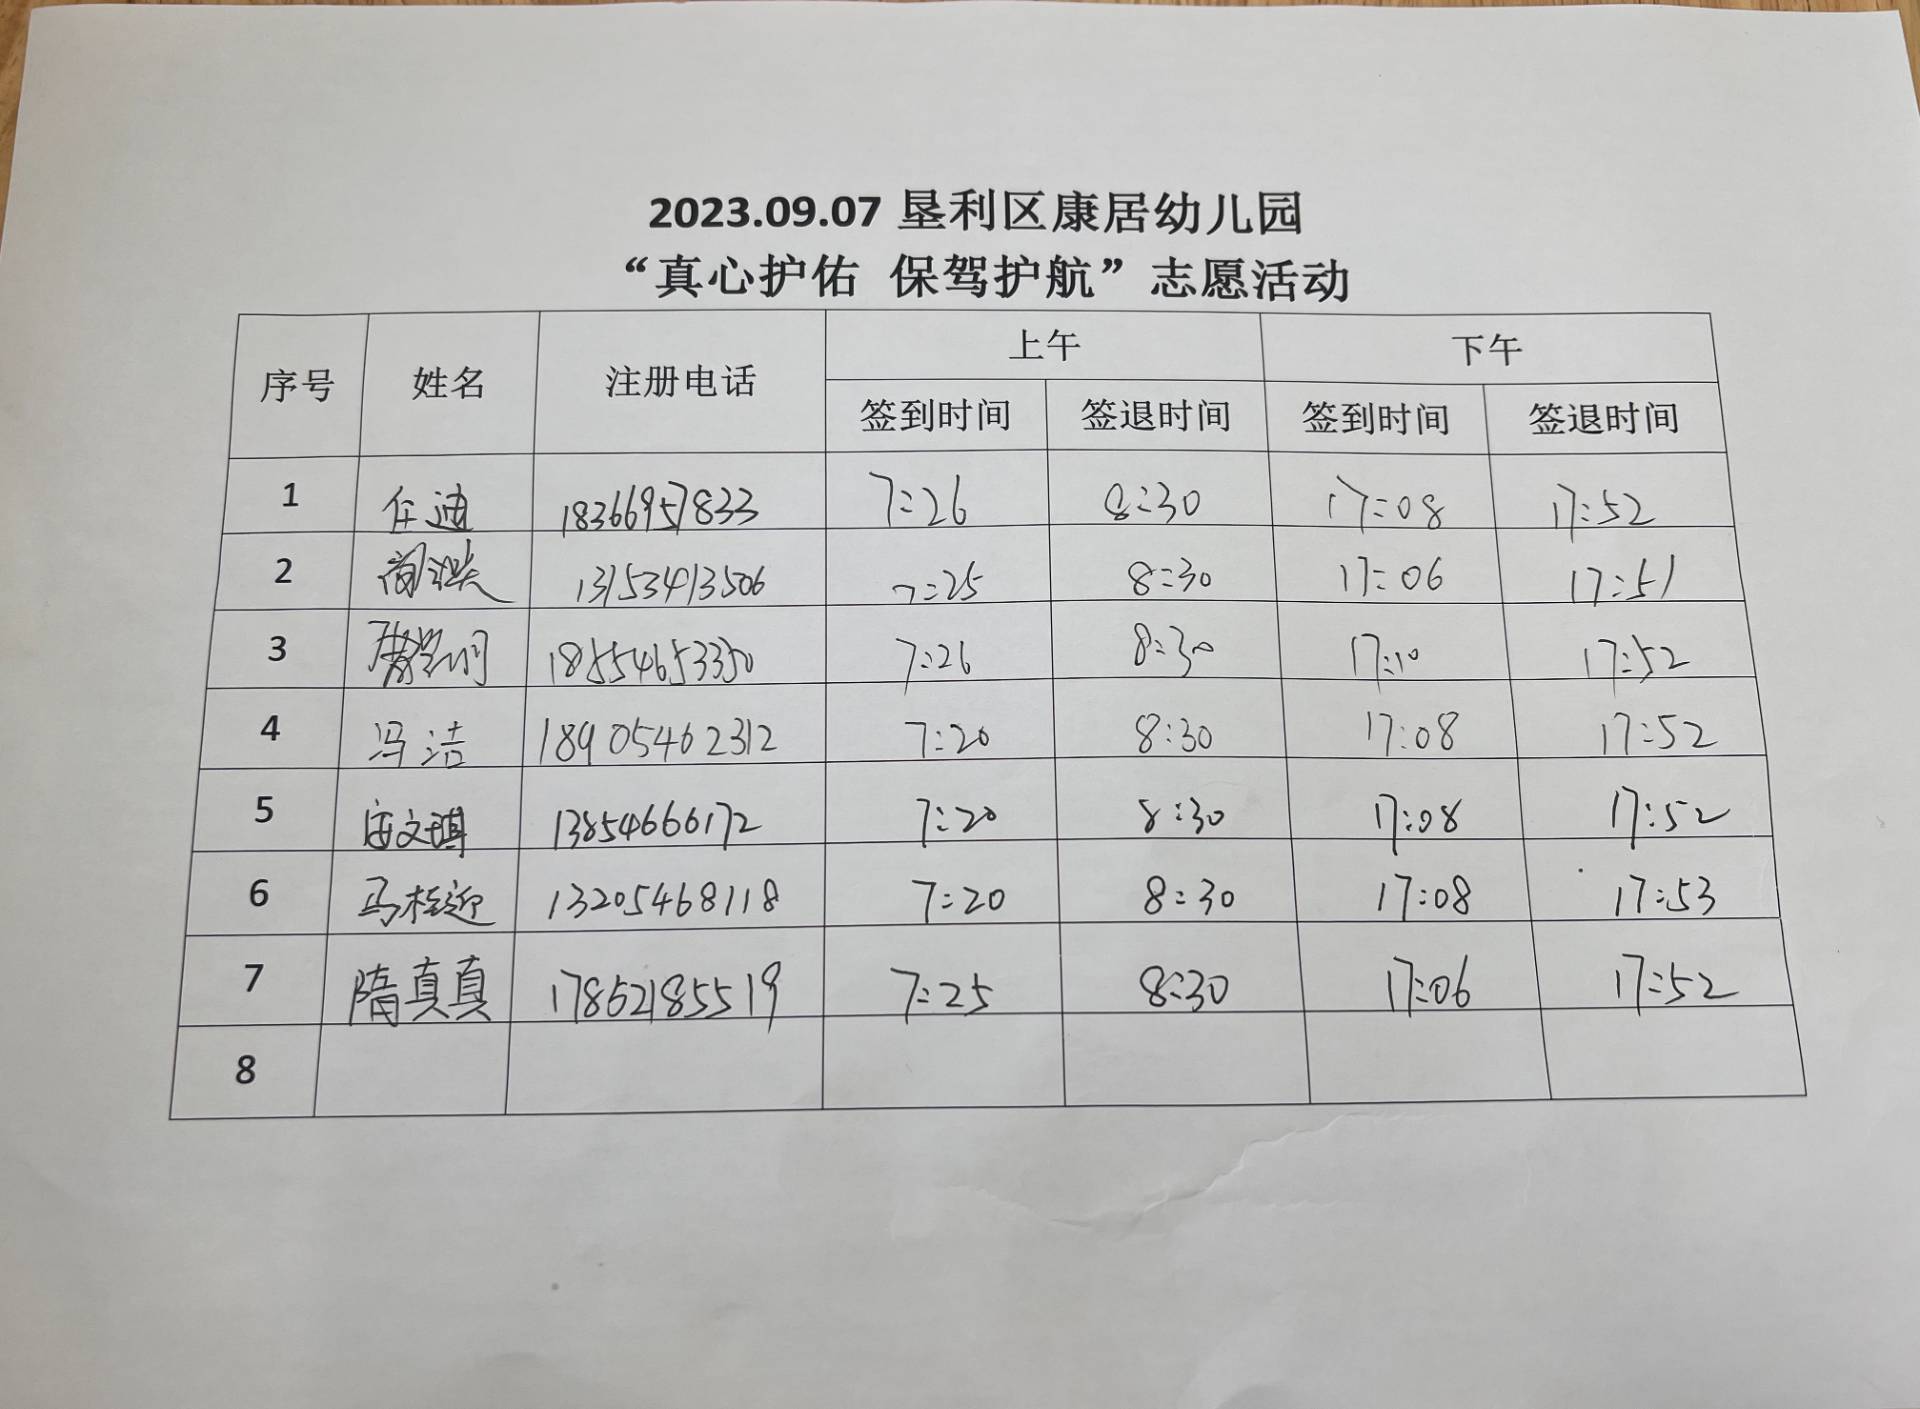 2023.09.07 垦利区康居幼儿园
“真心护佑 保驾护航”志愿活动
序号 姓名 注册电话 上午 下午
签到时间 签退时间 签到时间 签退时间
1 任迪 18366957833 7:26 8:30 17:08 17:52
2 13153413506 7:25 8:30 17:06 17:51
3 18554653350 7:26 8:30 17:10 17:52
4 冯洁 18905462312 7:20 8:30 17:08 17:52
5 文琪 13854666172 7:20 8:30 17:08 17:52
6 马桂迎 13205468118 7:20 8:30 17:08 17:53
7 隋真真 17862185519 7:25 8:30 17:06 17:52
8